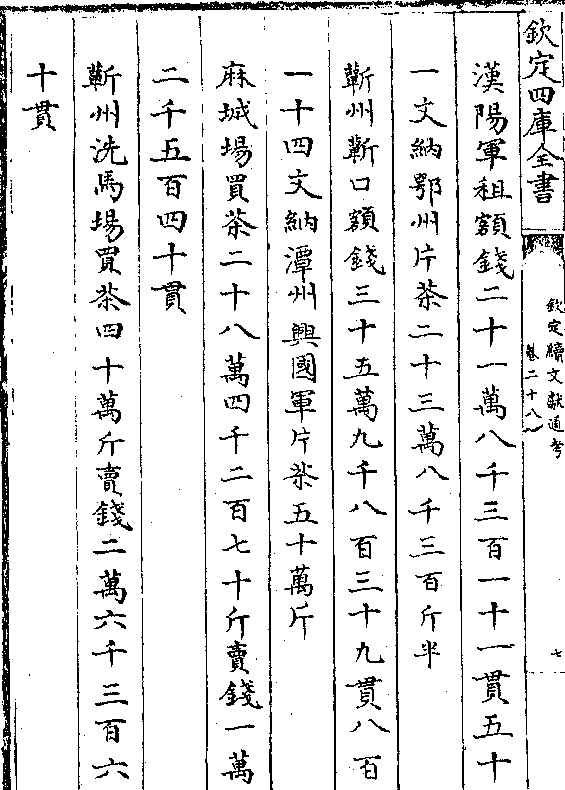 欽定四庫全書
欽定續文獻通考
卷二十八
七
漢陽軍租額錢二十一萬八千三百一十一貫五十
一文納鄂州片茶二十三萬八千三百斤半
蘄州蘄口額錢三十五萬九千八百三十九貫八百
一十四文納潭州興國軍片茶五十萬斤
麻城場買茶二十八萬四千二百七十斤賣錢一萬
二千五百四十貫
蘄州洗馬場買茶四十萬斤賣錢二萬六千三百六
十貫